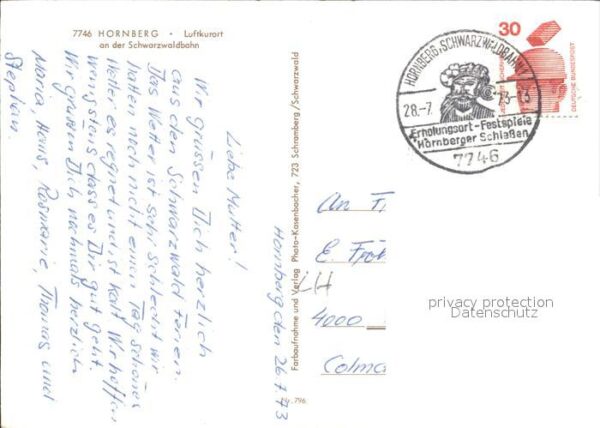 7746 HORNBERG · Luftkurort
an der Schwarzwaldbahn
Liebe Mutter!
Wir grüssen Dich herzlich
aus den Schwarzwald Ferien.
Das Wetter ist sehr schlecht wir
hatten noch nicht einen Tag schönes
Wetter es regnet und ist kalt. Wir hoffen
wenigstens dass es Dir gut geht.
Wir grüssen Dich nochmals herzlich
Maria, Hans, Rosmarie, Thomas und
Stephan.
Hornberg den 26.7.73
Farbaufnahme und Verlag Photo-Kasenbacher, 723 Schramberg/Schwarzwald
Nr. 796
HORNBERG, SCHWARZWALDBAHN
28.-7. 73-13
Erholungsort-Festspiele
"Hornberger Schießen"
7746
30
DEUTSCHE BUNDESPOST
An
E.
LH
4000
Colma
privacy protection
Datenschutz